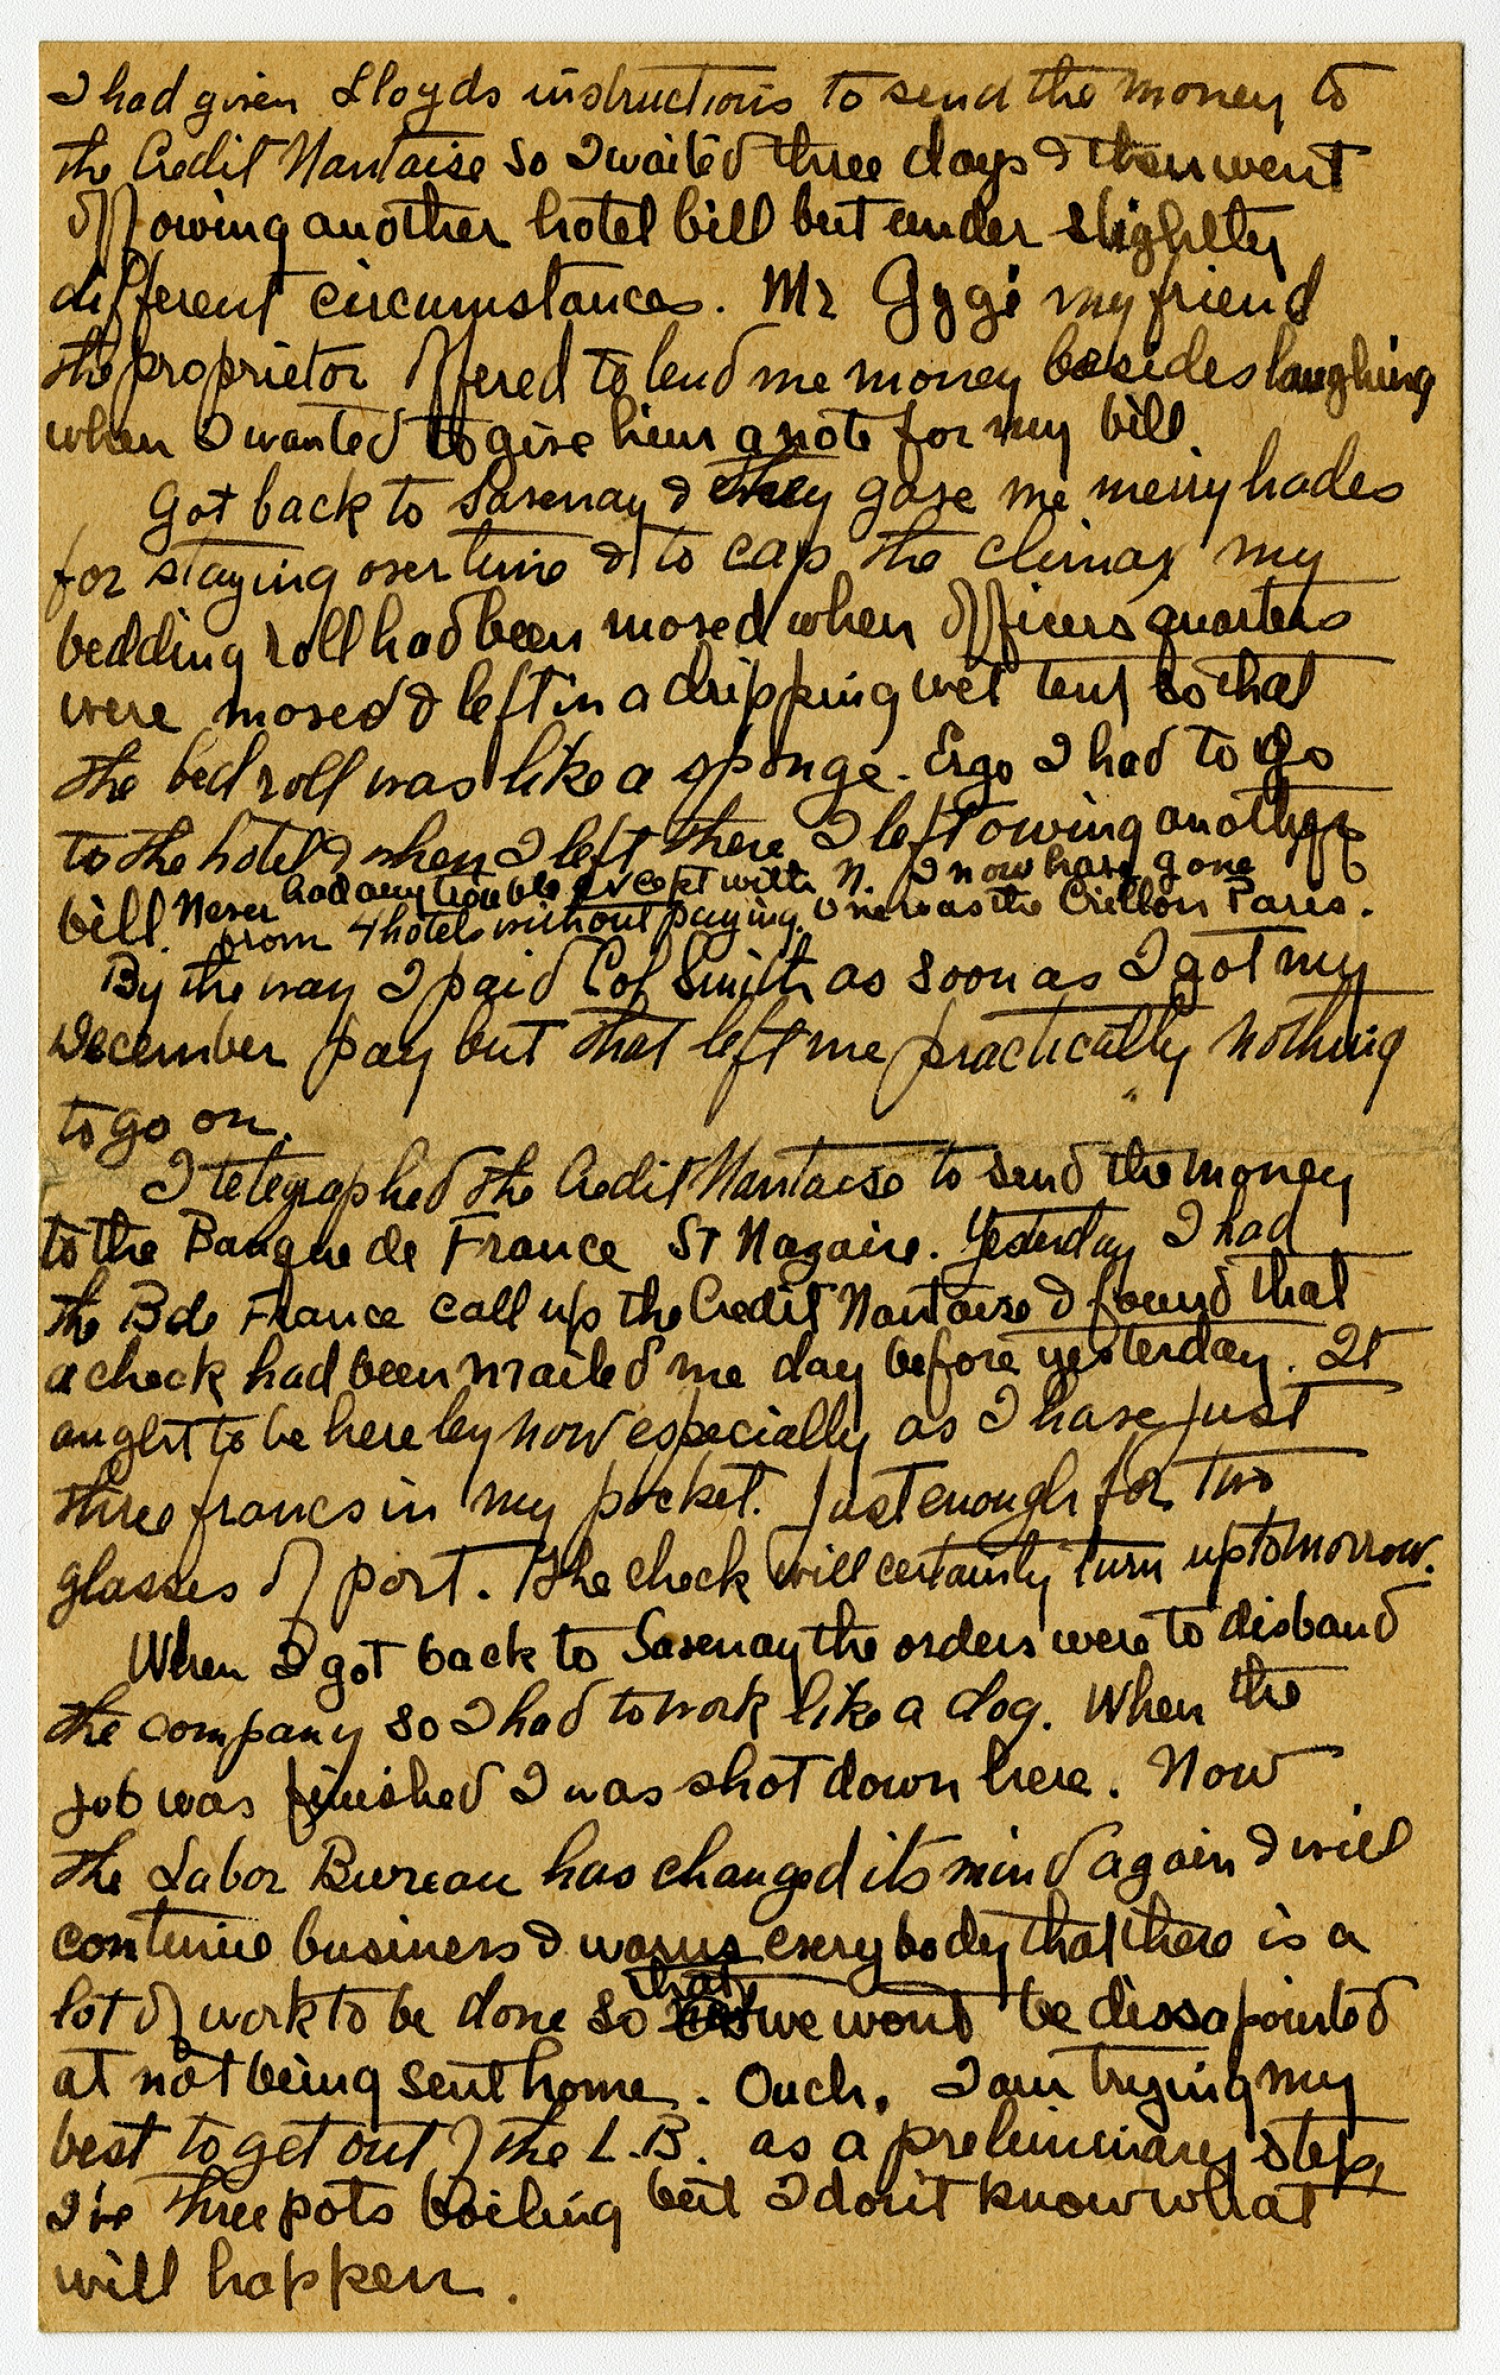 I had given Lloyds instructions to send the money to
the Credit Nantaise so I waited three days & then went
off owing another hotel bill but under slightly
different circumstances. Mr Gygi my friend
the proprietor offered to lend me money besides laughing
when I wanted to give him a note for my bill.
Got back to Sasenay & they gave me merry hades
for staying over time & to cap the climax my
bedding roll had been moved when officers quarters
were moved & left in a dripping wet tent so that
the bed roll was like a sponge. Ergo I had to go
to the hotel & when I left there I left owing another
bill. Never had any trouble except with N. I now have gone
from 4 hotels without paying. One was the Crillon Paris.
By the way I paid Col Smith as soon as I got my
December pay but that left me practically nothing
to go on.
I telegraphed the Credit Nantaise to send the money
to the Banque de France St Nazaire. Yesterday I had
the B de France call up the Credit Nantaise & found that
a check had been mailed me day before yesterday. It
aught to be here by now especially as I have just
three francs in my pocket. Just enough for two
glasses of port. The check will certainly turn up tomorrow.
When I got back to Sasenay the orders were to disband
the company so I had to work like a dog. When the
job was finished I was shot down here. Now
the Labor Bureau has changed its mind again & will
continue business & warns everybody that there is a
lot of work to be done so that we wont be dissapointed
at not being sent home. Ouch. I am trying my
best to get out of the L.B. as a preliminary step,
I've three pots boiling but I don't know what
will happen.